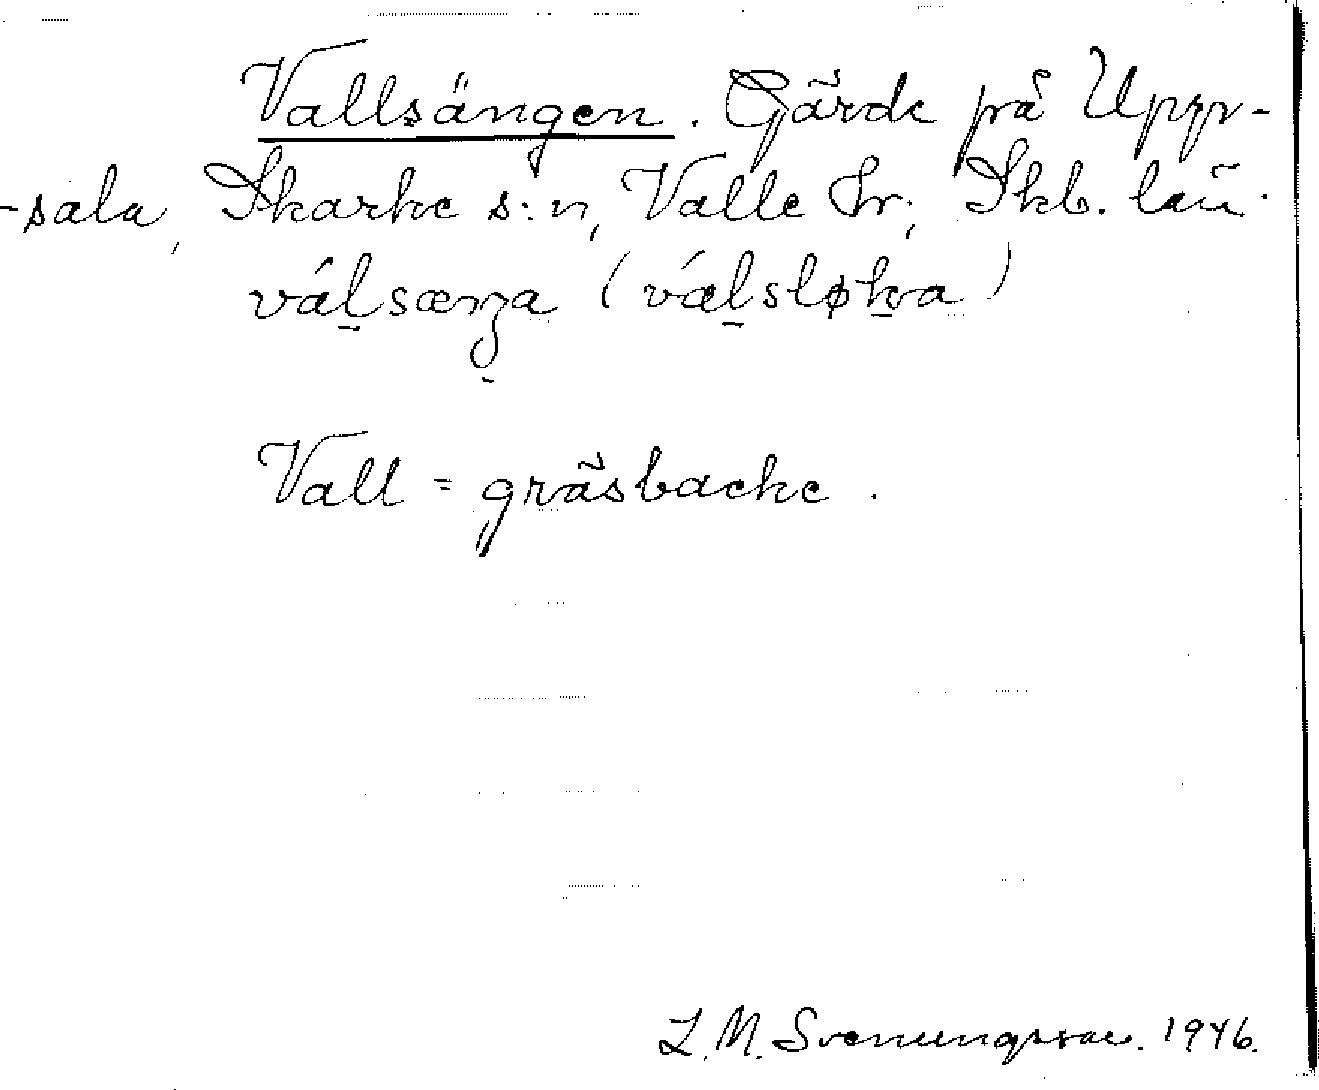 Vallsängen. Gärde på Upp-
-sala, Skarke s:n, Valle hr; Skb. län.
vál̠sæŋa (vál̠sløk̠a)
Vall = gräsbacke.
L. M. Svenungsson. 1946.